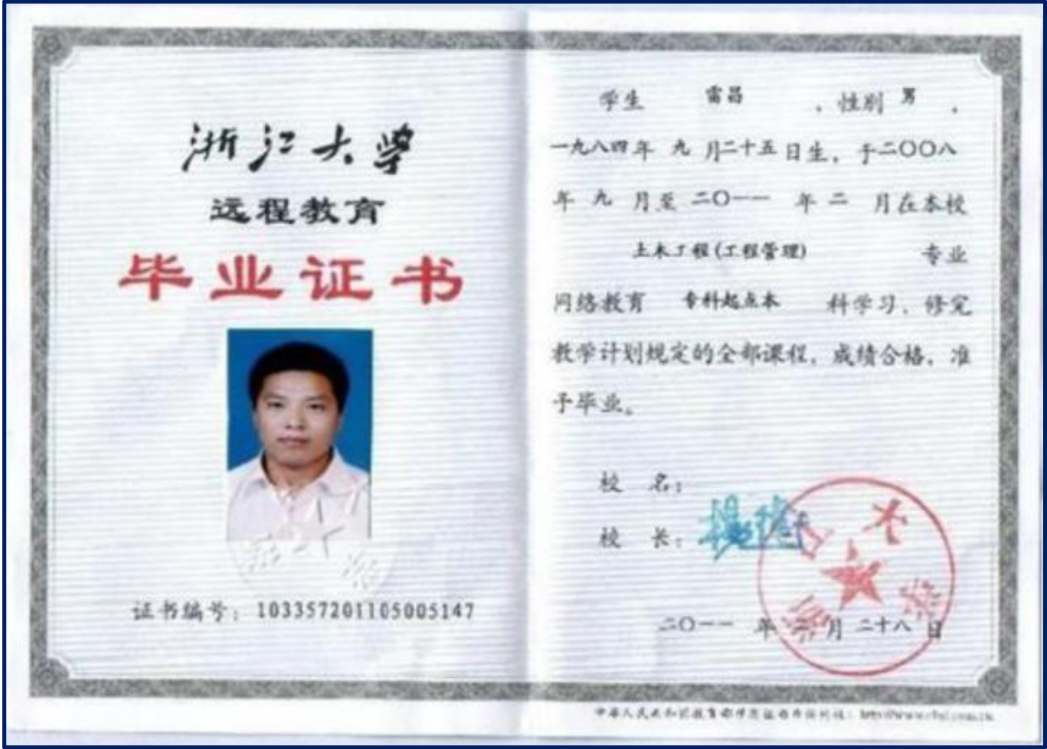 浙江大学
远程教育
毕业证书
证书编号：103357201105005147
学生 雷昌 ，性别 男 ，
一九八四年 九 月二十五日生，于二〇〇八
年 九 月至 二〇一一 年 二 月在本校
土木工程(工程管理) 专业
网络教育 专科起点本 科学习，修完
教学计划规定的全部课程，成绩合格，准
予毕业。
校 名：
校 长：
二〇一一 年 二 月 二十八 日
中华人民共和国教育部学历证书查询网址：http://www.chsi.com.cn